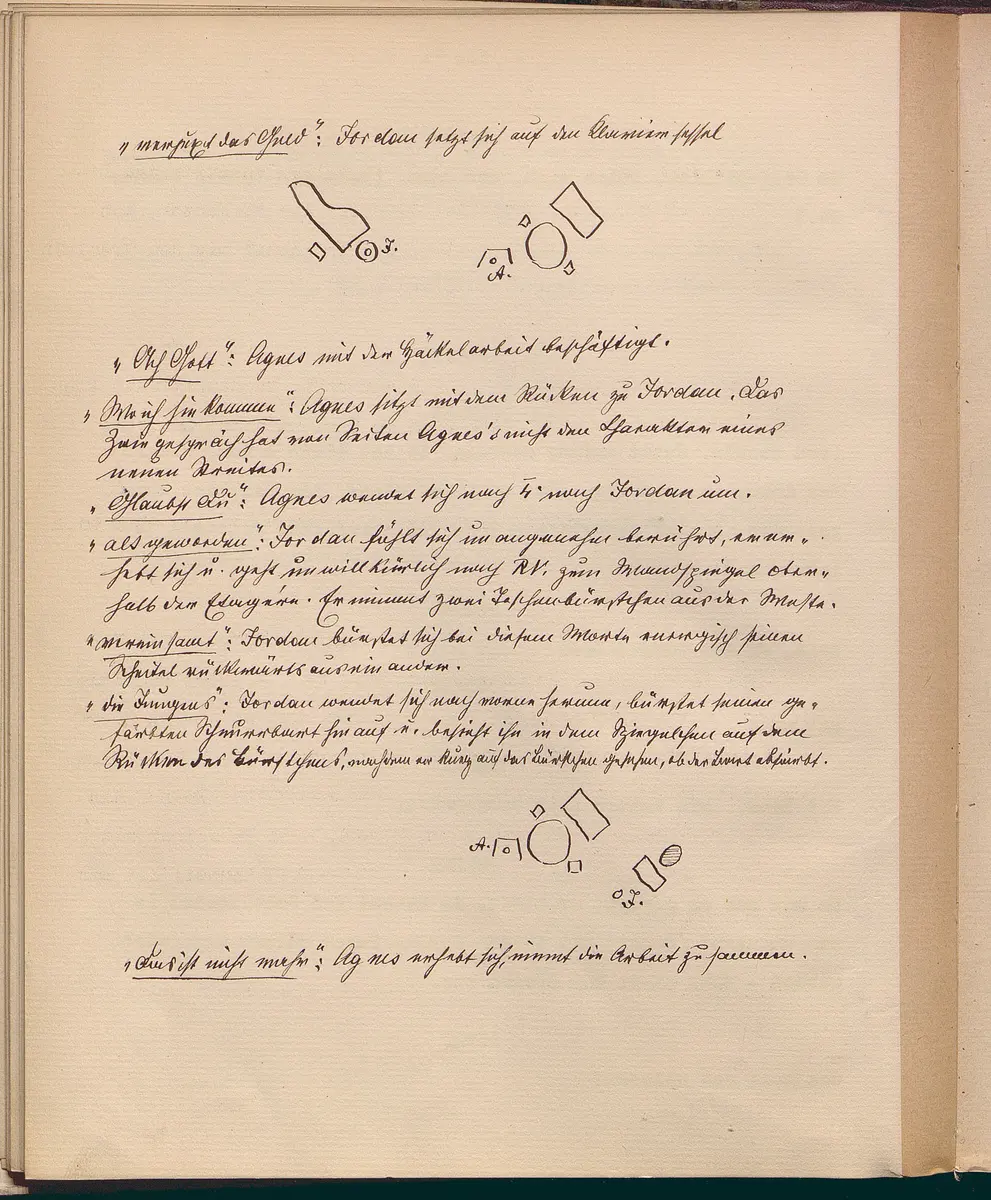 „verjuxt das Geld“: Jordan setzt sich auf den Klaviersessel
J.
A.
„Ach Gott“: Agnes mit der Häckelarbeit beschäftigt.
„Wo ich hie komme“: Agnes sitzt mit dem Rücken zu Jordan. Das
Zwiegespräch hat von Seiten Agnes's nicht den Charakter eines
neuen Streites.
„Glaubst Du“: Agnes wendet sich nach l. nach Jordan um.
„alt geworden“: Jordan fühlt sich unangenehm berührt, er er„
hebt sich u. geht unwillkürlich nach RV. zum Wandspiegel ober„
halb der Etagére. Er nimmt zwei Taschenbürstchen aus der Weste.
„vereinsamt“: Jordan bürstet sich bei diesem Worte energisch seinen
Scheitel rückwärts auseinander.
„die Jungens“: Jordan wendet sich nach vorne herum, bürstet seinen ge„
färbten Schnurrbart hinauf u. besieht ihn in dem Spiegelchen auf dem
Rücken des Bürstchens, nachdem er kurz auf das Bürstchen gesehen, ob der Bart abfärbt.
A.
J.
„Das ist nicht wahr“: Agnes erhebt sich, nimmt die Arbeit zusammen.